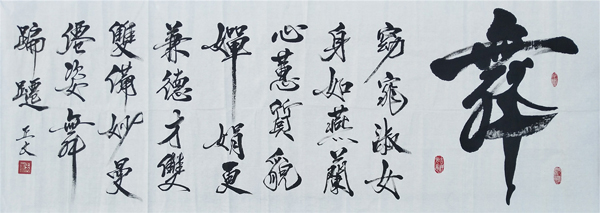 舞
窈窕淑女
身如燕蘭
心蕙質貌
嬋娟更
兼德才雙
雙備妙曼
僊姿舞
蹁躚